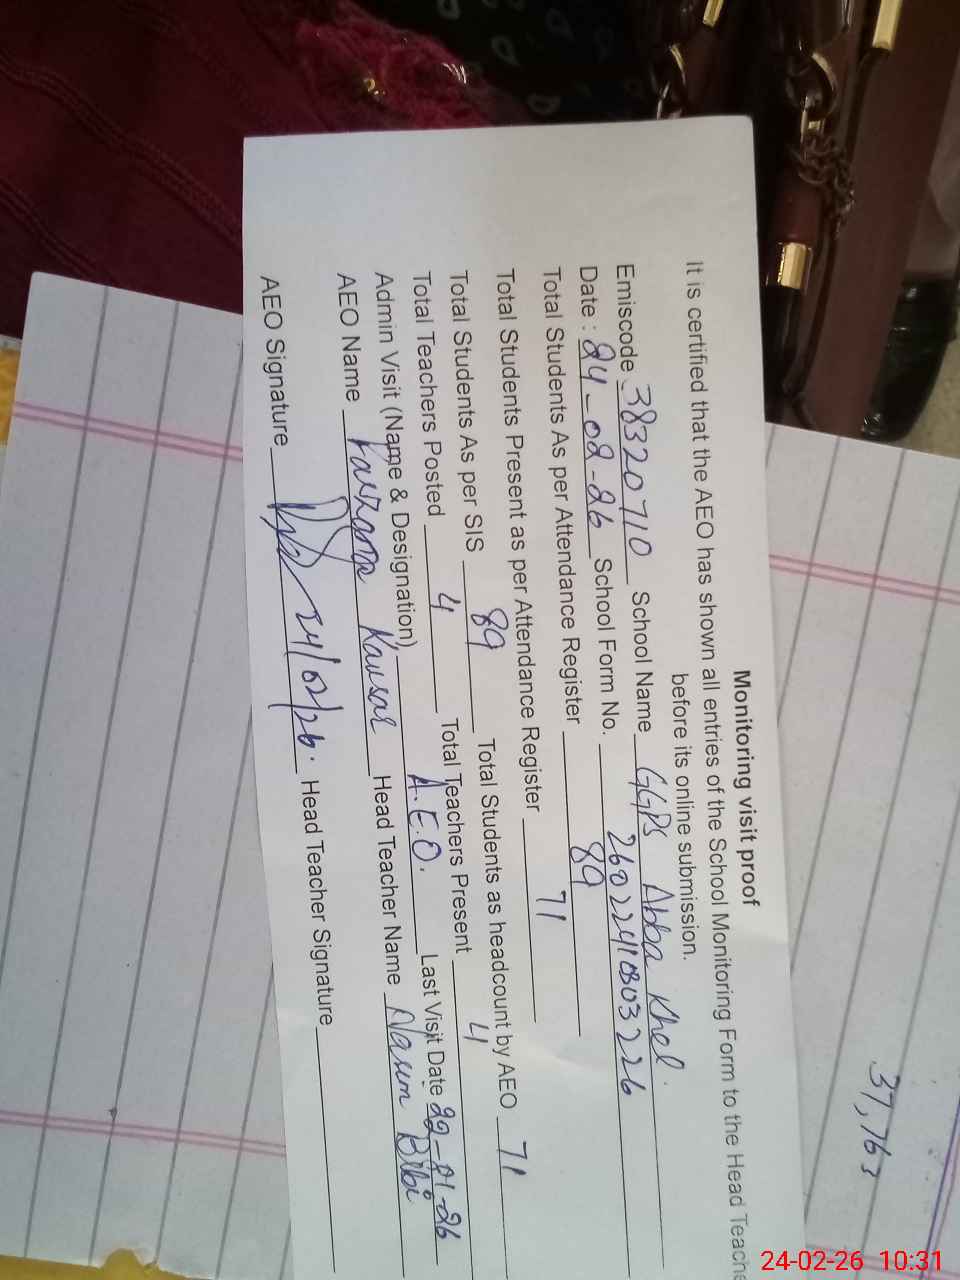 Monitoring visit proof
It is certified that the AEO has shown all entries of the School Monitoring Form to the Head Teache
before its online submission.
Emiscode 38320710 School Name GGPS Abba Khel.
Date : 24-02-26 School Form No. 2602241803226
Total Students As per Attendance Register 89
Total Students Present as per Attendance Register 71
Total Students As per SIS 89 Total Students as headcount by AEO 71
Total Teachers Posted 4 Total Teachers Present 4
Admin Visit (Name & Designation) A.E.O. Last Visit Date 22-01-26
AEO Name Farzana Kausar Head Teacher Name Nasim Bibi
AEO Signature 24/02/26. Head Teacher Signature
37,763
24-02-26 10:31